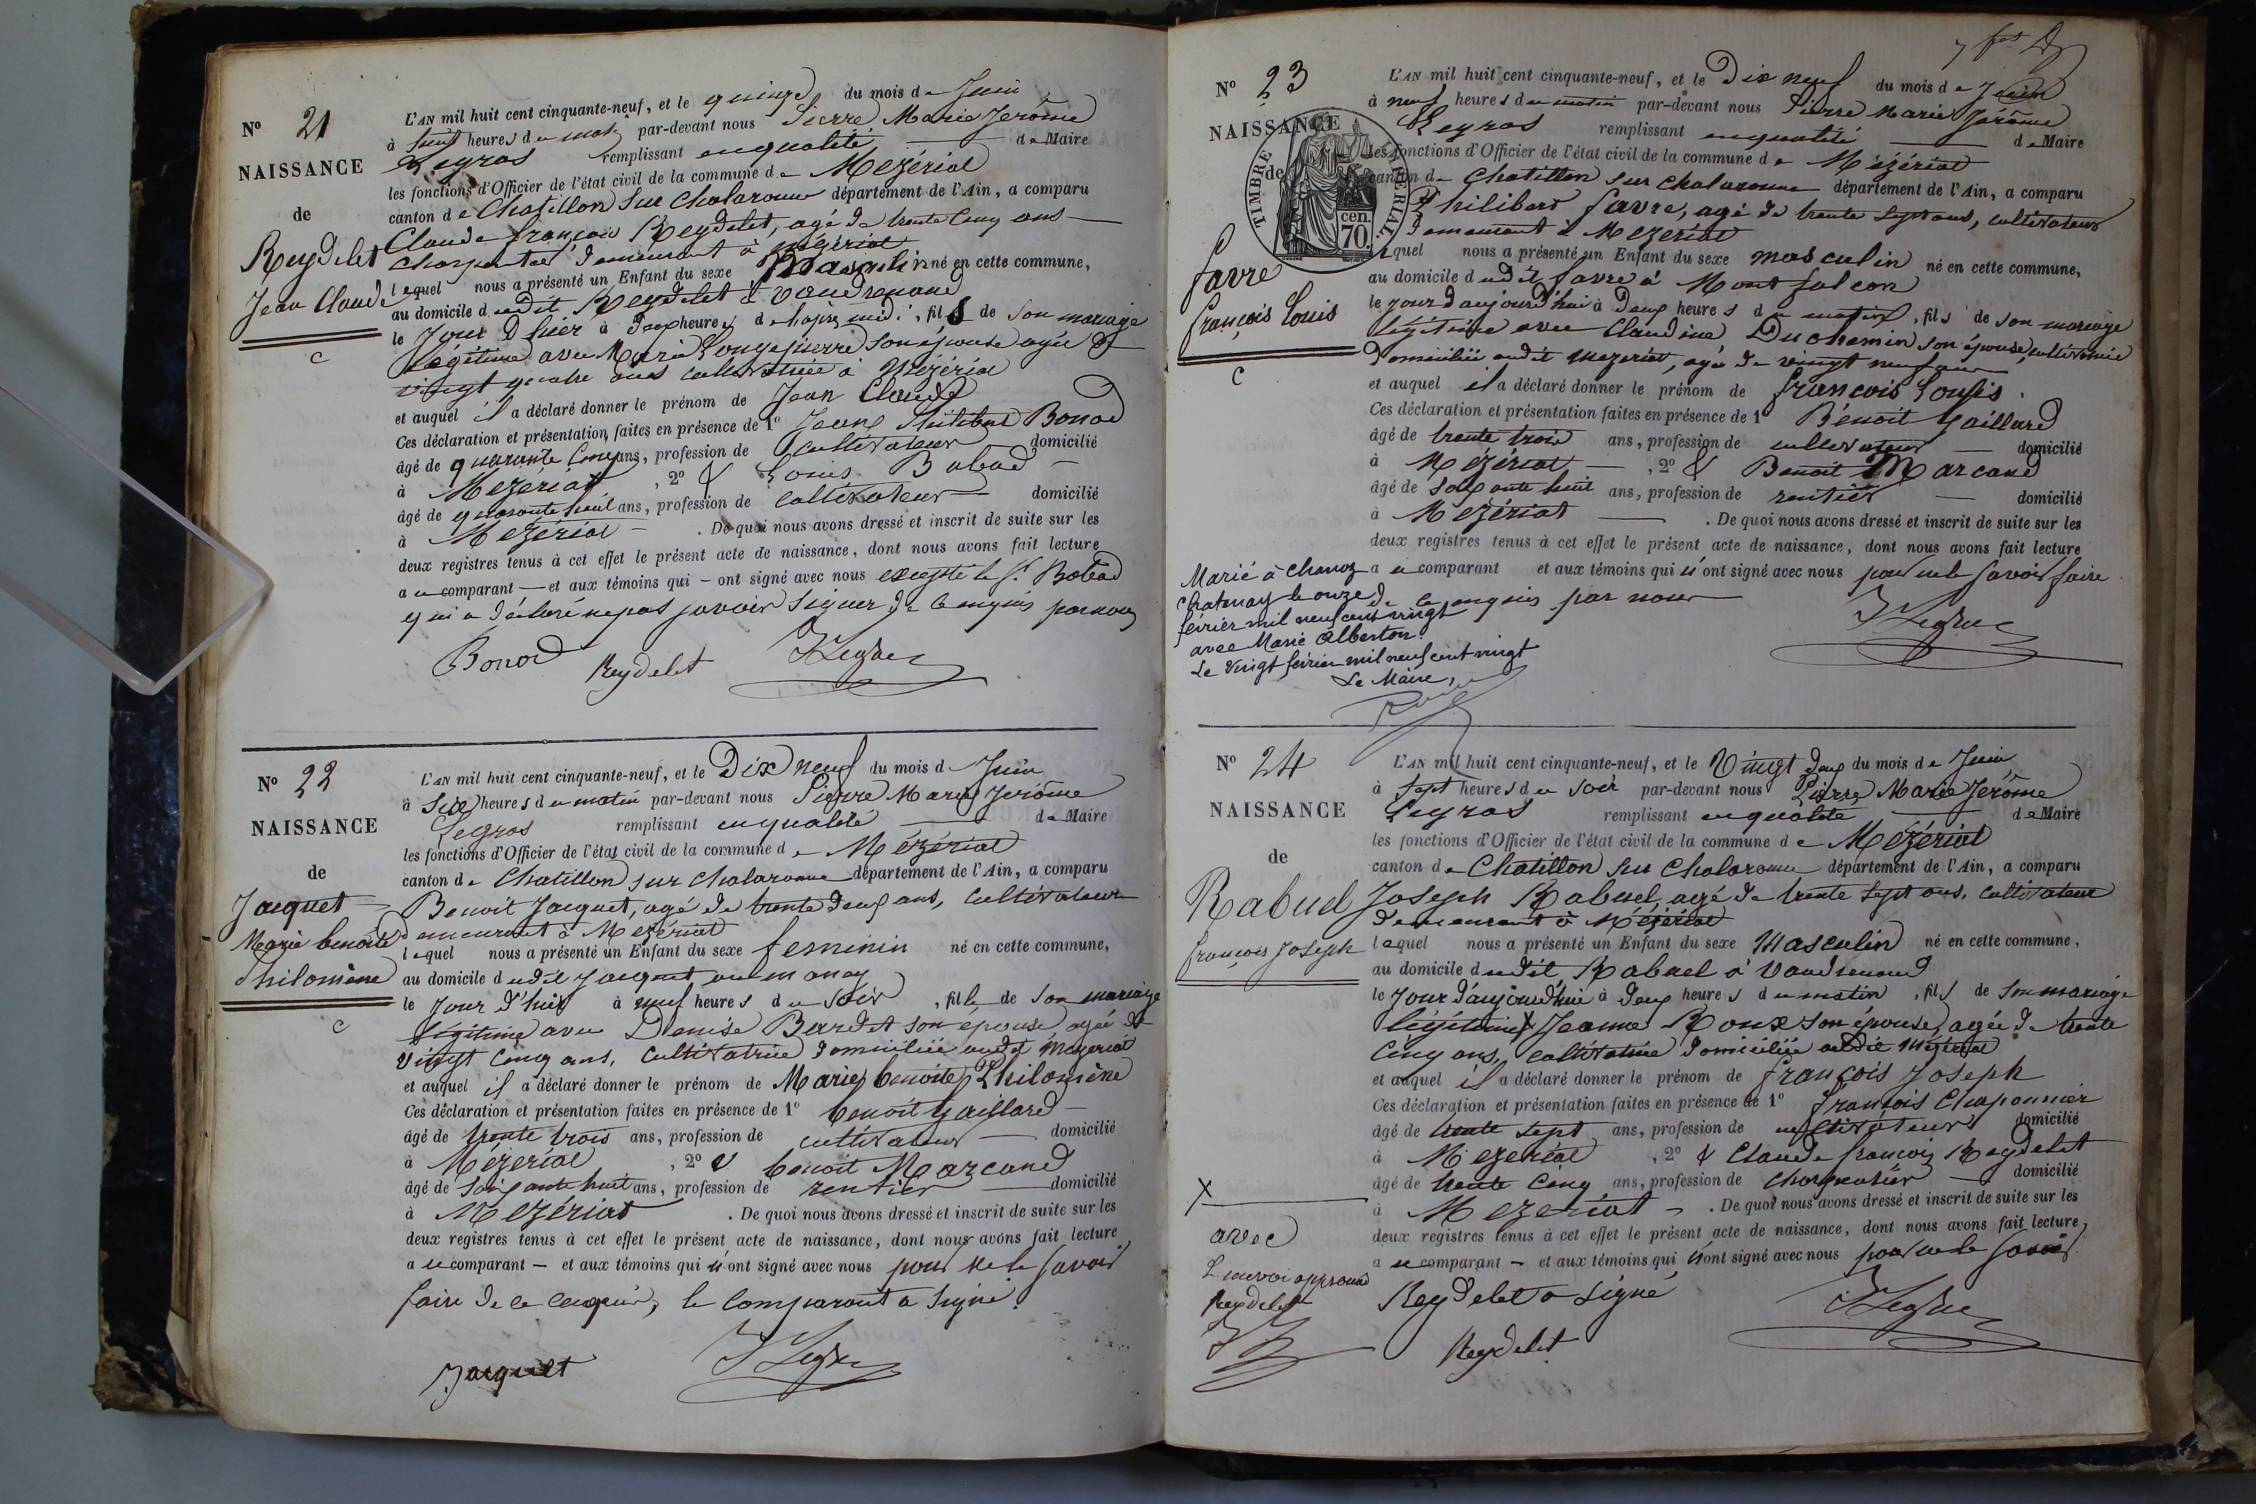 No 21
NAISSANCE
de
Reydelet
Jean Claude
C
L'AN mil huit cent cinquante-neuf, et le quinze du mois de Juin
à huit heures du mat par-devant nous Pierre Marie Jerôme
Legros remplissant en qualité de Maire
les fonctions d'Officier de l'état civil de la commune de Mézériat
canton de Chatillon sur Chalaronne département de l'Ain, a comparu
Claude françois Reydelet, agé de trente cinq ans
charpentier demeurant à Mézériat
lequel nous a présenté un Enfant du sexe Masculin né en cette commune,
au domicile dudit Reydelet à Vaudrenand
le Jour d'hier à deux heures de l'après midi, fils de son mariage
légitime avec Marie Longepierre son épouse agée de
vingt quatre ans cultivatrice à Mézériat
et auquel il a déclaré donner le prénom de Jean Claude
Ces déclaration et présentation faites en présence de 1o Jean Philibert Bonod
âgé de quarante cinq ans, profession de cultivateur domicilié
à Mézériat, 2o & Louis Babad
âgé de quarante huit ans, profession de cultivateur domicilié
à Mezériat. De quoi nous avons dressé et inscrit de suite sur les
deux registres tenus à cet effet le présent acte de naissance, dont nous avons fait lecture
au comparant et aux témoins qui ont signé avec nous excepté le Sr Babad
qui a déclaré ne pas savoir signer de ce enquis par nous
Bonod Reydelet JLegros
No 22
NAISSANCE
de
Jacquet
Marie benoite
Philomène
C
L'AN mil huit cent cinquante-neuf, et le Dix neuf du mois de Juin
à Six heures du matin par-devant nous Pierre Marie Jerôme
Legros remplissant en qualité de Maire
les fonctions d'Officier de l'état civil de la commune de Mézériat
canton de Chatillon sur Chalaronne département de l'Ain, a comparu
Benoit Jacquet, agé de trente deux ans, Cultivateur
demeurant à Mezériat
lequel nous a présenté un Enfant du sexe feminin né en cette commune,
au domicile dudit Jacquet
le Jour d'hier à neuf heures du soir, fille de son mariage
légitime avec Denise Burdet son épouse, agée de
Vingt cinq ans, cultivatrice domiciliée audit Mezeriat
et auquel il a déclaré donner le prénom de Marie benoite Philomène
Ces déclaration et présentation faites en présence de 1o benoit Gaillard
âgé de trente trois ans, profession de cultivateur domicilié
à Mézeriat, 2o & benoit Marcand
âgé de soixante huit ans, profession de rentier domicilié
à Mezériat. De quoi nous avons dressé et inscrit de suite sur les
deux registres tenus à cet effet le présent acte de naissance, dont nous avons fait lecture
au comparant et aux témoins qui n'ont signé avec nous pour ne le savoir
faire de ce enquis, le comparant a signé.
Jacquet JLegros
No 23
NAISSANCE
de
TIMBRE IMPERIAL
cen.
70.
favre
françois Louis
C
L'AN mil huit cent cinquante-neuf, et le Dix neuf du mois de Juin
à neuf heures du matin par-devant nous Pierre Marie Jerôme
Legros remplissant en qualité de Maire
les fonctions d'Officier de l'état civil de la commune de Mézériat
canton de Chatillon sur Chalaronne département de l'Ain, a comparu
Philibert favre, agé de trente sept ans, cultivateur
demeurant à Mezeriat
lequel nous a présenté un Enfant du sexe masculin né en cette commune,
au domicile dudit favre à Mont falcon
le jour d'aujourd'hui à Deux heures du matin, fils de son mariage
légitime avec Claudine Duchemin son épouse, cultivatrice
domiciliée audit Mezeriat, agé de vingt neuf ans
et auquel il a déclaré donner le prénom de françois Louis.
Ces déclaration et présentation faites en présence de 1o Bénoit Gaillard
âgé de trente trois ans, profession de cultivateur domicilié
à Mézériat, 2o & Benoit Marcand
âgé de soixante huit ans, profession de rentier domicilié
à Mézériat. De quoi nous avons dressé et inscrit de suite sur les
deux registres tenus à cet effet le présent acte de naissance, dont nous avons fait lecture
au comparant et aux témoins qui n'ont signé avec nous pour ne le savoir faire
de ce enquis par nous
JLegros
Marié à Chanoz
Chatenay le onze
février mil neuf cent vingt
avec Marie Alberton.
Le Vingt février mil neuf cent vingt
Le Maire,
No 24
NAISSANCE
de
Rabuel
françois Joseph
L'AN mil huit cent cinquante-neuf, et le Vingt deux du mois de Juin
à sept heures du soir par-devant nous Pierre Marie Jerôme
Legros remplissant en qualité de Maire
les fonctions d'Officier de l'état civil de la commune de Mézériat
canton de Chatillon sur Chalaronne département de l'Ain, a comparu
Joseph Rabuel, agé de trente sept ans, cultivateur
demeurant à Mézériat
lequel nous a présenté un Enfant du sexe Masculin né en cette commune,
au domicile dudit Rabuel à Vaudrenand
le Jour d'aujourd'hui à deux heures du matin, fils de son mariage
légitime X Jeanne Roux son épouse, agée de trente
cinq ans, cultivatrice domiciliée audit Mézériat
et auquel il a déclaré donner le prénom de françois Joseph
Ces déclaration et présentation faites en présence de 1o françois Chaponnier
âgé de trente sept ans, profession de cultivateur domicilié
à Mezériat, 2o & Claude françois Reydelet
âgé de trente cinq ans, profession de charpentier domicilié
à Mezériat. De quoi nous avons dressé et inscrit de suite sur les
deux registres tenus à cet effet le présent acte de naissance, dont nous avons fait lecture
au comparant et aux témoins qui n'ont signé avec nous pour ne le savoir
Reydelet a signé
Reydelet JLegros
X
avec
Renvoi approuvé
Reydelet